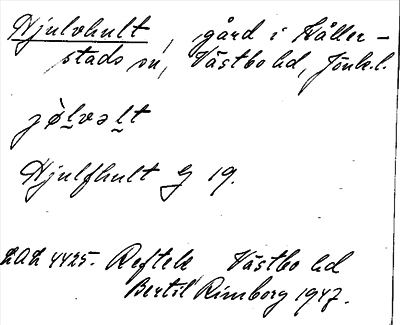 Hjulvhult, gård i Håller-
stads sn, Västbo hd, Jönk.l.
jø̀lvəlt
Hjulfhult G 19.
LAL 4425. Reftele Västbo hd
Bertil Rimborg 1947.